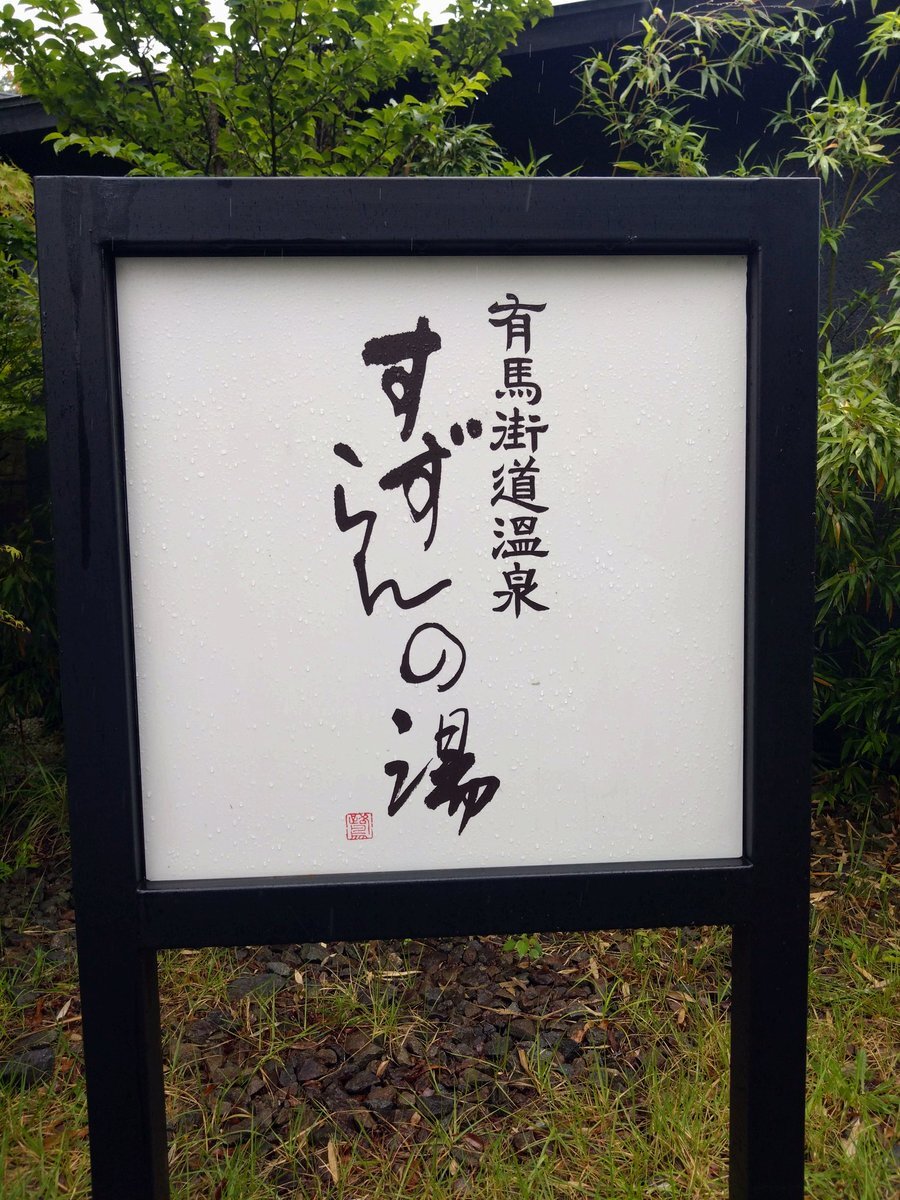 有馬街道溫泉
すずらんの湯